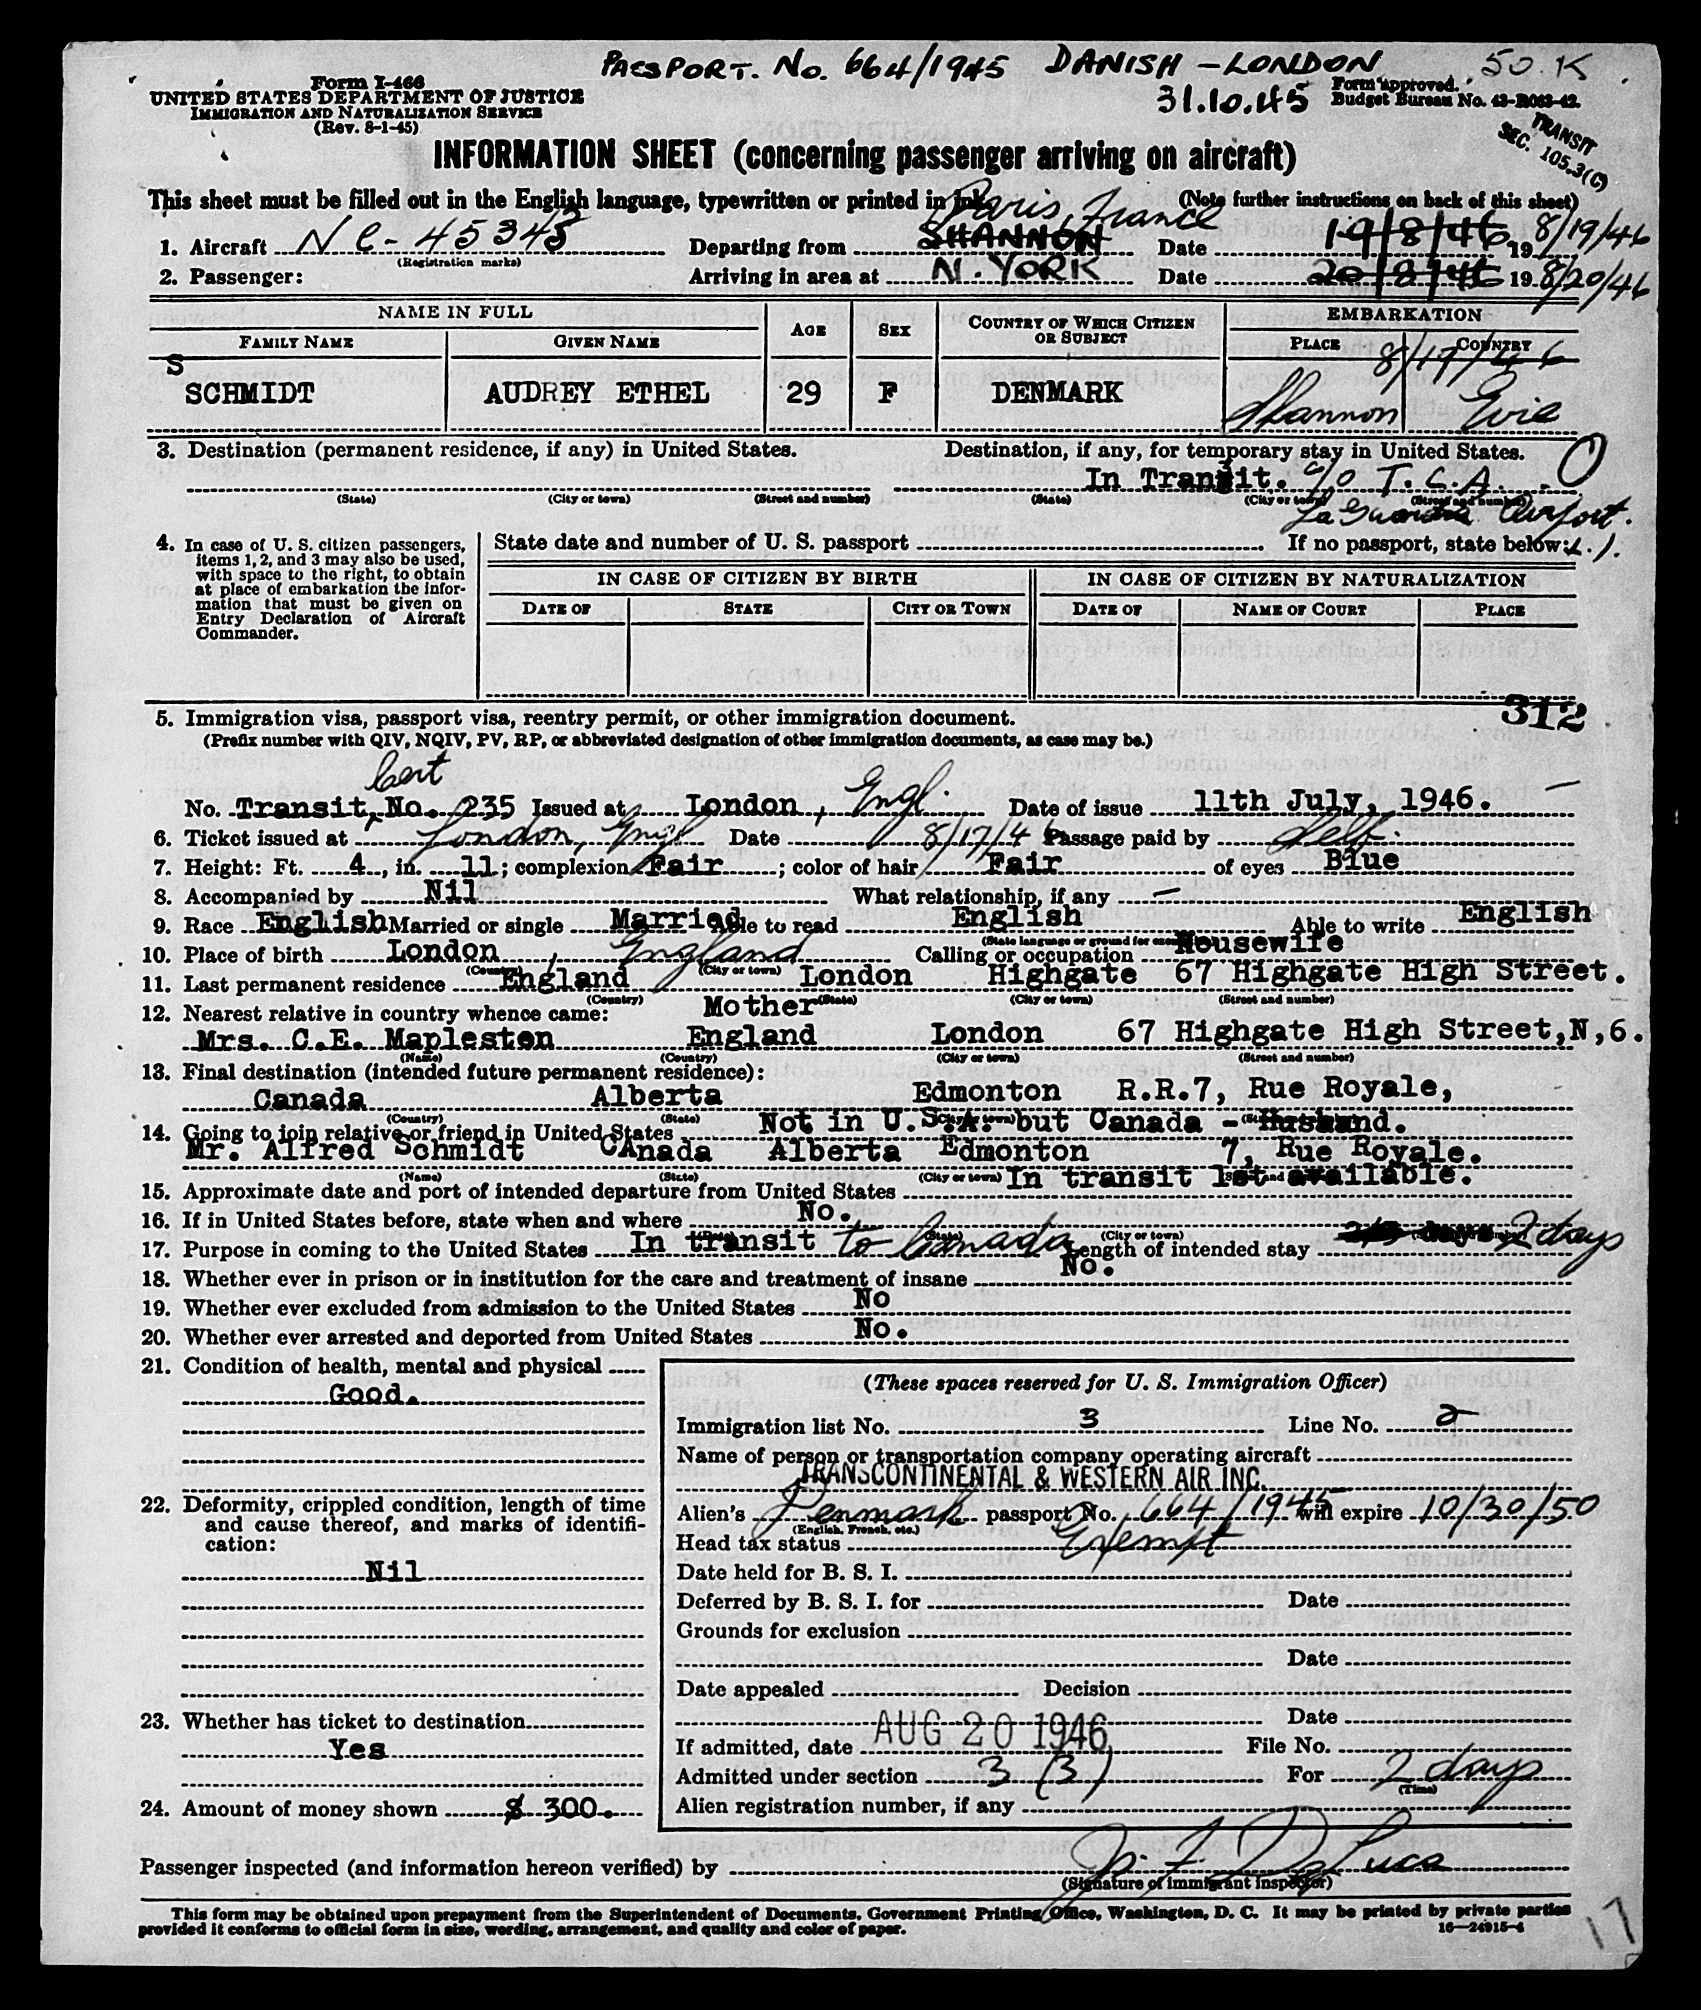 PASSPORT. No. 664/1945 DANISH - LONDON 50.K
31.10.45
Form I-466
UNITED STATES DEPARTMENT OF JUSTICE
IMMIGRATION AND NATURALIZATION SERVICE
(Rev. 8-1-45)
Form approved.
Budget Bureau No. 43-R083-42.
TRANSIT
SEC. 105.3(C)
INFORMATION SHEET (concerning passenger arriving on aircraft)
This sheet must be filled out in the English language, typewritten or printed in ink. (Note further instructions on back of this sheet)
Paris, France
1. Aircraft NC-45343 Departing from SHANNON Date 19/8/46 19 8/19/46
(Registration marks)
2. Passenger: Arriving in area at N. YORK Date 20/8/46 19 8/20/46
NAME IN FULL AGE SEX COUNTRY OF WHICH CITIZEN OR SUBJECT EMBARKATION
FAMILY NAME GIVEN NAME PLACE COUNTRY
S 8/17/46
SCHMIDT AUDREY ETHEL 29 F DENMARK Shannon Eire
3. Destination (permanent residence, if any) in United States. Destination, if any, for temporary stay in United States.
In Transit. c/o T.C.A. O
(State) (City or town) (Street and number) (State) (City or town) (Street and number)
La Guardia Airport.
4. In case of U. S. citizen passengers, items 1, 2, and 3 may also be used, with space to the right, to obtain at place of embarkation the information that must be given on Entry Declaration of Aircraft Commander.
State date and number of U. S. passport If no passport, state below:
IN CASE OF CITIZEN BY BIRTH IN CASE OF CITIZEN BY NATURALIZATION
DATE OF STATE CITY OR TOWN DATE OF NAME OF COURT PLACE
312
5. Immigration visa, passport visa, reentry permit, or other immigration document.
(Prefix number with QIV, NQIV, PV, RP, or abbreviated designation of other immigration documents, as case may be.)
Cert
No. Transit No. 235 Issued at London, Engl. Date of issue 11th July, 1946.
6. Ticket issued at London, Engl Date 8/17/46 Passage paid by Self.
7. Height: Ft. 4, in. 11; complexion Fair; color of hair Fair of eyes Blue
8. Accompanied by Nil What relationship, if any —
9. Race English Married or single Married Able to read English Able to write English
(State language or ground for exemption)
10. Place of birth London, England Calling or occupation Housewife
(Country) (City or town)
11. Last permanent residence England London Highgate 67 Highgate High Street.
(Country) (State) (City or town) (Street and number)
12. Nearest relative in country whence came: Mother
Mrs. C.E. Mapleston England London 67 Highgate High Street,N,6.
(Name) (Country) (City or town) (Street and number)
13. Final destination (intended future permanent residence):
Canada Alberta Edmonton R.R.7, Rue Royale,
(Country) (State) (City or town) (Street and number)
14. Going to join relative or friend in United States Not in U.S.A. but Canada - Husband.
Mr. Alfred Schmidt CAnada Alberta Edmonton 7, Rue Royale.
(Name) (State) (City or town) (Street and number)
15. Approximate date and port of intended departure from United States In transit 1st available.
16. If in United States before, state when and where No.
(State) (City or town)
17. Purpose in coming to the United States In transit to Canada Length of intended stay 2/3 days 2 days
18. Whether ever in prison or in institution for the care and treatment of insane No.
19. Whether ever excluded from admission to the United States No
20. Whether ever arrested and deported from United States No.
21. Condition of health, mental and physical
Good.
22. Deformity, crippled condition, length of time and cause thereof, and marks of identification:
Nil
23. Whether has ticket to destination
Yes
24. Amount of money shown $ 300.
(These spaces reserved for U. S. Immigration Officer)
Immigration list No. 3 Line No. 2
Name of person or transportation company operating aircraft
TRANSCONTINENTAL & WESTERN AIR INC.
Alien's Denmark passport No. 664/1945 will expire 10/30/50
(English, French, etc.)
Head tax status Exempt
Date held for B. S. I.
Deferred by B. S. I. for Date
Grounds for exclusion
Date
Date appealed Decision
Date
If admitted, date AUG 20 1946 File No.
Admitted under section 3 (3) For 2 days
(Time)
Alien registration number, if any
Passenger inspected (and information hereon verified) by J. F. DeLuca
(Signature of immigrant inspector)
This form may be obtained upon prepayment from the Superintendent of Documents, Government Printing Office, Washington, D. C. It may be printed by private parties
provided it conforms to official form in size, wording, arrangement, and quality and color of paper. 16—24915-4
17